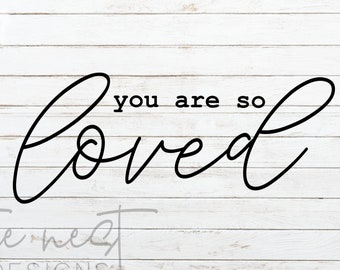 you are so
loved
nest
DESIGNS